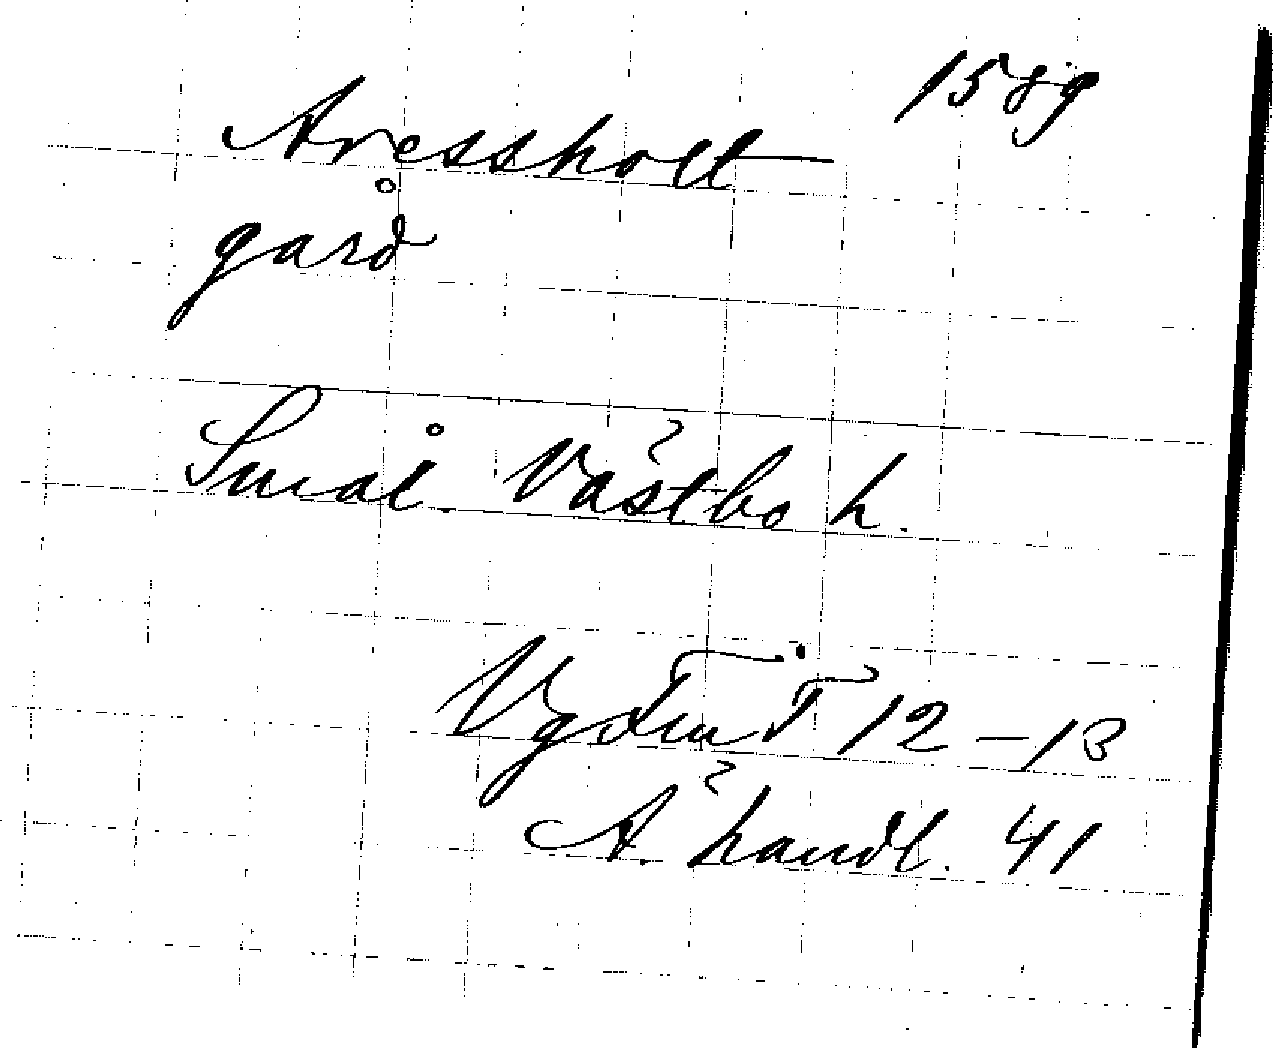 1589
Aressholt
gård
Smål. Västbo h.
12-13
A. handl. 41